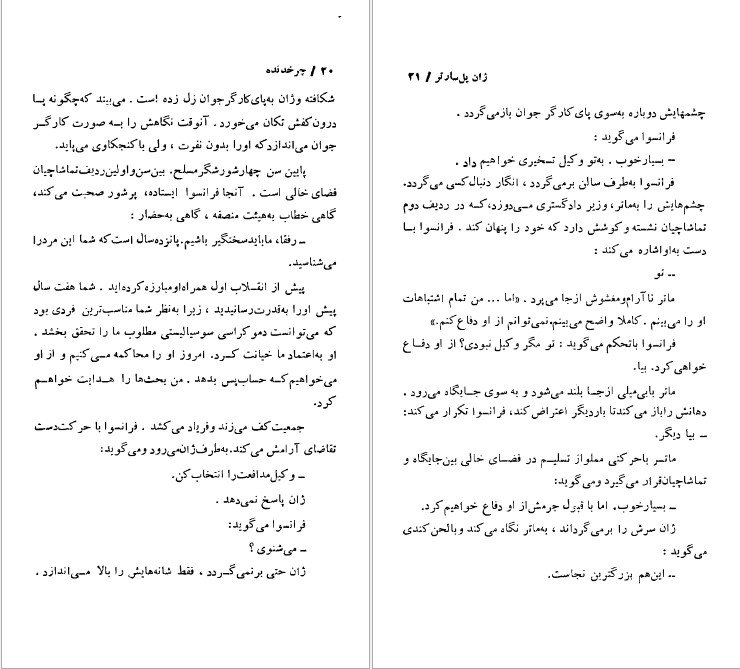 ۲۰ / چرخدنده
شکافته وژان به‌پای‌کارگرجوان زل زده است . می‌بیند که‌چگونه پا
درون‌کفش تکان می‌خورد . آنوقت نگاهش را به صورت کارگر
جوان می‌اندازدکه اورا بدون نفرت ، ولی باکنجکاوی می‌پاید.
پایین سن چهارشورشگرمسلح. بین‌سن‌واولین‌ردیف‌تماشاچیان
فضای‌خالی است . آنجا فرانسوا ایستاده، پرشور صحبت می‌کند،
گاهی خطاب به‌هیئت منصفه ، گاهی به‌حضار :
ــ رفقا، مابایدسختگیر باشیم. پانزده‌سال است‌که شما این مردرا
می‌شناسید.
پیش از انقلاب اول همراه‌اومبارزه‌کرده‌اید . شما هفت سال
پیش اورا به‌قدرت‌رسانیدید ، زیرا به‌نظر شما مناسب‌ترین فردی بود
که می‌توانست دموکراسی سوسیالیستی مطلوب ما را تحقق بخشد .
او به‌اعتماد ما خیانت کرد. امروز او را محاکمه می‌کنیم و از او
می‌خواهیم‌که حساب‌پس بدهد . من بحث‌ها را هدایت خواهم
کرد.
جمعیت‌کف می‌زند وفریاد می‌کشد . فرانسوا با حرکت‌دست
تقاضای آرامش می‌کند.به‌طرف‌ژان‌می‌رود ومی‌گوید:
ــ وکیل‌مدافعت‌را انتخاب‌کن.
ژان پاسخ نمی‌دهد .
فرانسوا می‌گوید:
ــ می‌شنوی ؟
ژان حتی برنمی‌گردد ، فقط شانه‌هایش را بالا می‌اندازد .
ژان پل‌سارتر / ۲۱
چشمهایش دوباره به‌سوی پای‌کارگر جوان بازمی‌گردد .
فرانسوا می‌گوید :
ــ بسیارخوب . به‌تو وکیل تسخیری خواهیم داد .
فرانسوا به‌طرف سالن برمی‌گردد ، انگار دنبال‌کسی می‌گردد.
چشم‌هایش را به‌ماتر، وزیر دادگستری می‌دوزد،که در ردیف دوم
تماشاچیان نشسته وکوشش دارد که خود را پنهان کند . فرانسوا با
دست به‌اواشاره می‌کند :
ــ تو
ماتر ناآرام‌ومغشوش ازجا می‌پرد . «اما ... من تمام اشتباهات
او را می‌بینم . کاملا واضح می‌بینم،نمی‌توانم از او دفاع‌کنم.»
فرانسوا باتحکم می‌گوید : تو مگر وکیل نبودی؟ از او دفاع
خواهی‌کرد. بیا.
ماتر بابی‌میلی ازجا بلند می‌شود و به سوی جایگاه می‌رود .
دهانش راباز می‌کندتا باردیگر اعتراض‌کند، فرانسوا تکرار می‌کند:
ــ بیا دیگر.
ماتر باحرکتی مملواز تسلیم در فضای خالی بین‌جایگاه و
تماشاچیان‌قرار می‌گیرد ومی‌گوید:
ــ بسیارخوب. اما با قبول جرمش‌از او دفاع خواهم‌کرد.
ژان سرش را برمی‌گرداند ، به‌ماتر نگاه می‌کند وبالحن‌کندی
می‌گوید :
ــ این‌هم بزرگترین نجاست.